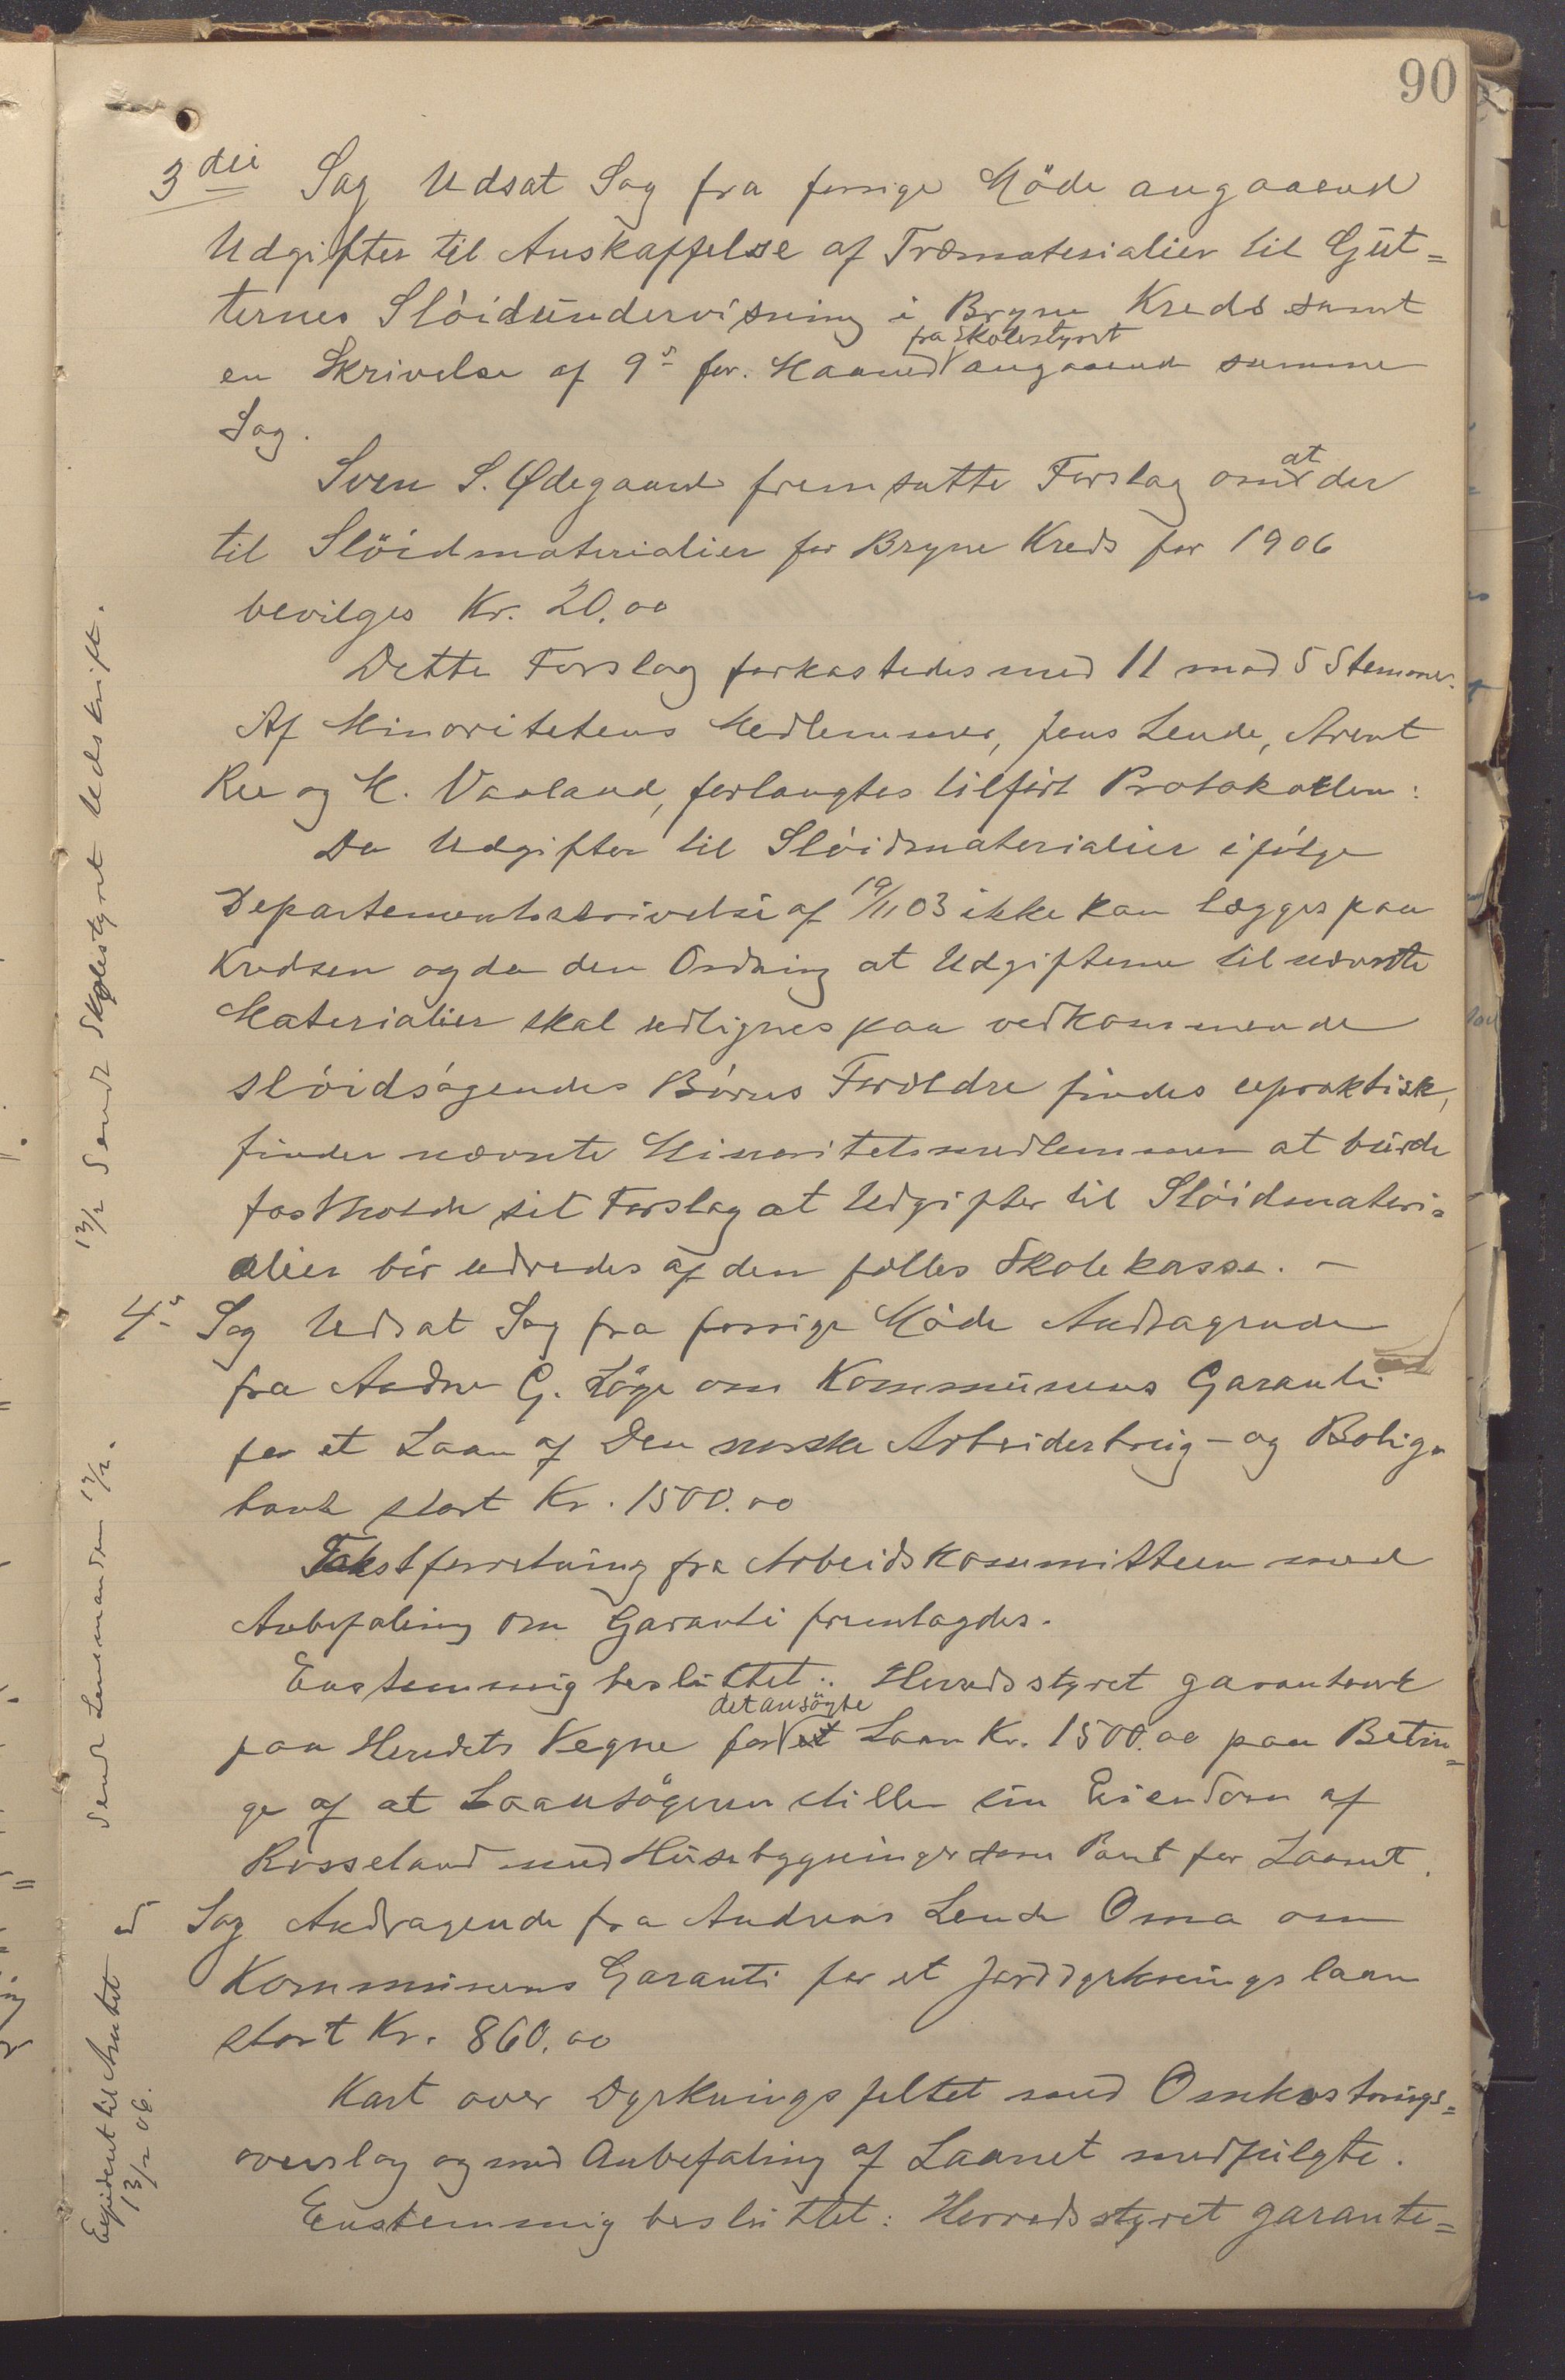 90
3die Sag Udsat Sag fra forrige Möde angaaend
Udgifter til Anskaffelse af Træmaterialier til Gut=
ternes Slöidundervisning i Bryne Kreds samt
fra Skolestyret
en Skrivelse af 9s for. Maaned angaaende samme
Sag.
at
Sven S. Ødegaard fremsatte Forslag om der
til Slöidmaterialier for Bryne Kreds for 1906
bevilges Kr. 20.00
Dette Forslag forkastedes med 11 mod 5 Stemmer.
Af Minoritetens Medlemmer, Jens Lende, Arent
Ree og M. Vaaland, forlangtes tilført Protokollen:
Da Udgifter til Slöidmaterialier ifölge
Departementsskrivelse af 19/11 03 ikke kan lægges paa
Kredsen og da den Ordning at Udgifterne til nævnte
Materialier skal udlignes paa vedkommende
slöidsögendes Börns Forældre findes upraktisk,
finder nævnte Minoritetsmedlemmer at burde
fastholde sit Forslag at Udgifter til Slöidmateri=
alier bör udredes af den fælles Skolekasse. —
4s Sag Udsat Sag fra forrige Möde Andragende
fra Andre G. Löge om Kommunens Garanti
for et Laan af Den norske Arbeiderbrug- og Bolig=
bank stort Kr. 1500.00
Takstforretning fra Arbeidskommitteen med
Anbefaling om Garanti fremlagdes.
Enstemmig besluttet: Herredsstyret garanterer
det ansögte
paa Herredets Vegne for et Laan Kr. 1500.00 paa Betin=
ge af at Laansögeren stiller sin Eiendom af
Rosseland med Husebygninger som Pant for Laanet.
5 Sag Andragende fra Andreas Lende Oma om
Kommunens Garanti for et Jorddyrkningslaan
stort Kr. 860.00
Kart over Dyrkningsfeltet med Omkostnings=
overslag og med Anbefaling af Laanet medfulgte.
Enstemmig besluttet: Herredsstyret garante=
13/2 Sendt Skolestyret Udskrift.
Sendt Lensmanden 17/2.
Expidert til Amtet
13/2 06.